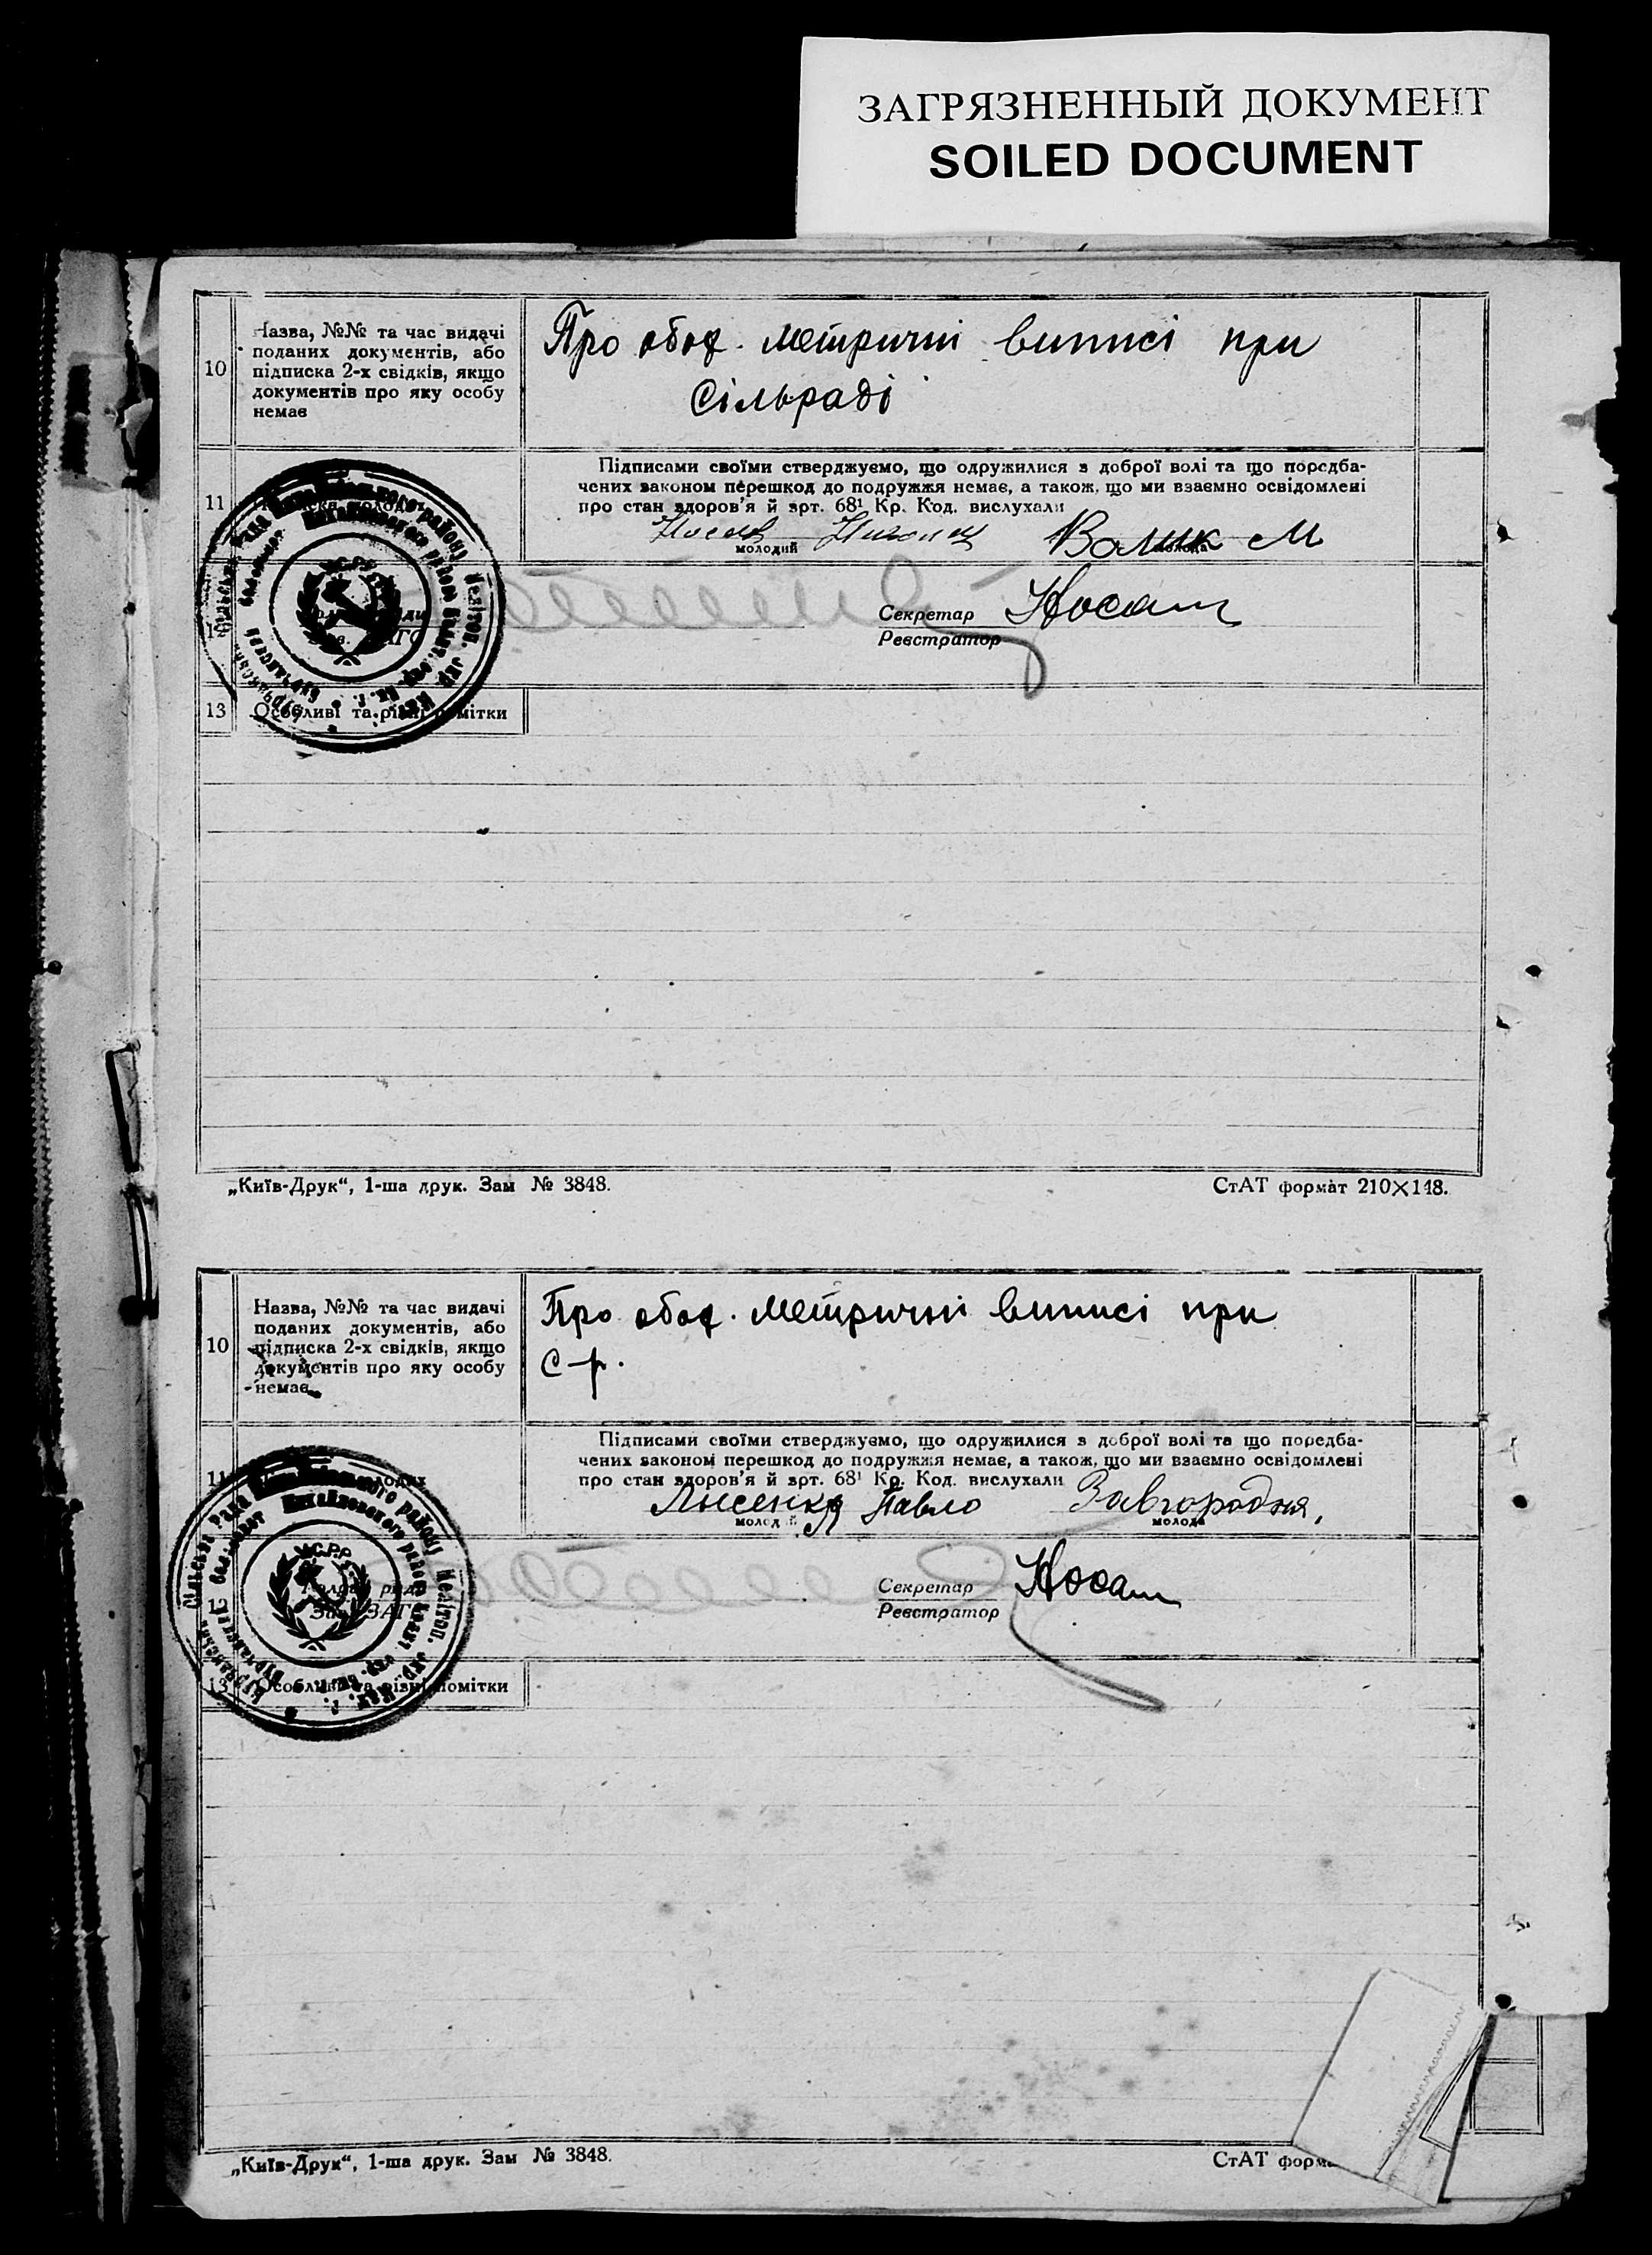 ЗАГРЯЗНЕННЫЙ ДОКУМЕНТ
SOILED DOCUMENT
10
Назва, №№ та час видачі
поданих документів, або
підписка 2-х свідків, якщо
документів про яку особу
немає
Про обох. метричні виписі при
Сільраді
11
Підписами своїми стверджуємо, що одружилися з доброї волі та що передба-
чених законом перешкод до подружжя немає, а також, що ми взаємно освідомлені
про стан здоров'я й арт. 68¹ Кр. Код. вислухали
Волик М
молодий
молода
Секретар Носач
Реєстратор
13
Особливі та різні помітки
„Київ-Друк“, 1-ша друк. Зам № 3848.
СтАТ формат 210×148.
10
Назва, №№ та час видачі
поданих документів, або
підписка 2-х свідків, якщо
документів про яку особу
немає
Про обох. метричні виписі при
с-р.
11
Підписами своїми стверджуємо, що одружилися з доброї волі та що передба-
чених законом перешкод до подружжя немає, а також, що ми взаємно освідомлені
про стан здоров'я й арт. 68¹ Кр. Код. вислухали
Лисенко Павло Завгородня,
молодий
молода
Секретар Носач
Реєстратор
13
Особливі та різні помітки
„Київ-Друк“, 1-ша друк. Зам № 3848.
СтАТ форма